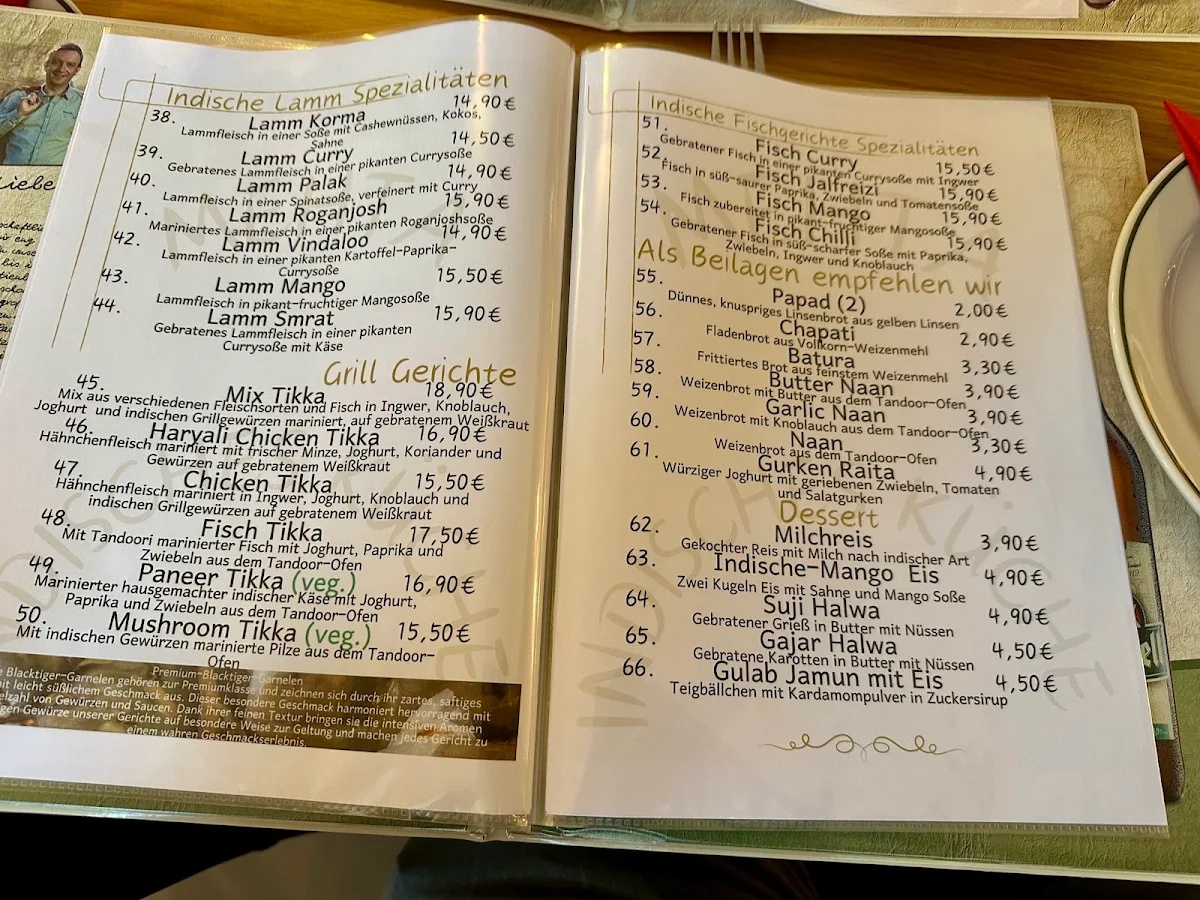 Liebe
Indische Lamm Spezialitäten
38. Lamm Korma 14,90€
Lammfleisch in einer Soße mit Cashewnüssen, Kokos,
Sahne
39. Lamm Curry 14,50€
Gebratenes Lammfleisch in einer pikanten Currysoße
40. Lamm Palak 14,90€
Lammfleisch in einer Spinatsoße, verfeinert mit Curry
41. Lamm Roganjosh 15,90€
Mariniertes Lammfleisch in einer pikanten Roganjoshsoße
42. Lamm Vindaloo 14,90€
Lammfleisch in einer pikanten Kartoffel-Paprika-
Currysoße
43. Lamm Mango 15,50€
Lammfleisch in pikant-fruchtiger Mangosoße
44. Lamm Smrat 15,90€
Gebratenes Lammfleisch in einer pikanten
Currysoße mit Käse
Grill Gerichte
45. Mix Tikka 18,90€
Mix aus verschiedenen Fleischsorten und Fisch in Ingwer, Knoblauch,
Joghurt und indischen Grillgewürzen mariniert, auf gebratenem Weißkraut
46. Haryali Chicken Tikka 16,90€
Hähnchenfleisch mariniert mit frischer Minze, Joghurt, Koriander und
Gewürzen auf gebratenem Weißkraut
47. Chicken Tikka 15,50€
Hähnchenfleisch mariniert in Ingwer, Joghurt, Knoblauch und
indischen Grillgewürzen auf gebratenem Weißkraut
48. Fisch Tikka 17,50€
Mit Tandoori marinierter Fisch mit Joghurt, Paprika und
Zwiebeln aus dem Tandoor-Ofen
49. Paneer Tikka (veg.) 16,90€
Marinierter hausgemachter indischer Käse mit Joghurt,
Paprika und Zwiebeln aus dem Tandoor-Ofen
50. Mushroom Tikka (veg.) 15,50€
Mit indischen Gewürzen marinierte Pilze aus dem Tandoor-
Ofen
Premium-Blacktiger-Garnelen
Blacktiger-Garnelen gehören zur Premiumklasse und zeichnen sich durch ihr zartes, saftiges
leicht süßlichem Geschmack aus. Dieser besondere Geschmack harmoniert hervorragend mit
von Gewürzen und Saucen. Dank ihrer feinen Textur bringen sie die intensiven Aromen
Gewürze unserer Gerichte auf besondere Weise zur Geltung und machen jedes Gericht zu
einem wahren Geschmackserlebnis.
Indische Fischgerichte Spezialitäten
51. Fisch Curry 15,50€
Gebratener Fisch in einer pikanten Currysoße mit Ingwer
52. Fisch Jalfreizi 15,90€
Fisch in süß-saurer Paprika, Zwiebeln und Tomatensoße
53. Fisch Mango 15,90€
Fisch zubereitet in pikant-fruchtiger Mangosoße
54. Fisch Chilli 15,90€
Gebratener Fisch in süß-scharfer Soße mit Paprika,
Zwiebeln, Ingwer und Knoblauch
Als Beilagen empfehlen wir
55. Papad (2) 2,00€
Dünnes, knuspriges Linsenbrot aus gelben Linsen
56. Chapati 2,90€
Fladenbrot aus Vollkorn-Weizenmehl
57. Batura 3,30€
Frittiertes Brot aus feinstem Weizenmehl
58. Butter Naan 3,90€
Weizenbrot mit Butter aus dem Tandoor-Ofen
59. Garlic Naan 3,90€
Weizenbrot mit Knoblauch aus dem Tandoor-Ofen
60. Naan 3,30€
Weizenbrot aus dem Tandoor-Ofen
61. Gurken Raita 4,90€
Würziger Joghurt mit geriebenen Zwiebeln, Tomaten
und Salatgurken
Dessert
62. Milchreis 3,90€
Gekochter Reis mit Milch nach indischer Art
63. Indische-Mango Eis 4,90€
Zwei Kugeln Eis mit Sahne und Mango Soße
64. Suji Halwa 4,90€
Gebratener Grieß in Butter mit Nüssen
65. Gajar Halwa 4,50€
Gebratene Karotten in Butter mit Nüssen
66. Gulab Jamun mit Eis 4,50€
Teigbällchen mit Kardamompulver in Zuckersirup